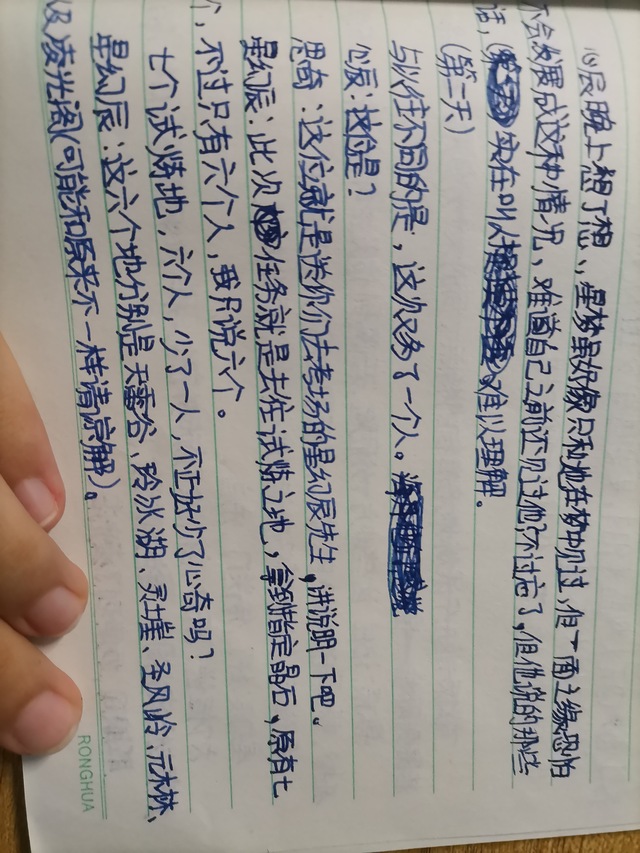 心辰晚上想了想,,星梦虽好像只和她在梦中见过,但一面之缘恐怕
不会发展成这种情况、难道自己之前还见过他?不过忘了,但他说的那些
话,实在叫人难以理解。
(第二天)
与以往不同的是,这次又多了一个人。
心辰:这位是?
思奇:这位就是送你们去考场的星幻辰先生,讲说明一下吧。
星幻辰:此次任务就是去往试炼之地,拿到指定晶石,原有七
个,不过只有六个人,我只说六个。
七个试炼地,六个人,少了一人,不正好少了心奇吗?
星幻辰:这六个地分别是天露谷、玲冰湖、灵崖、圣风岭、元木林、
以及凌光阁(可能和原来不一样请谅解)。
RONGHUA